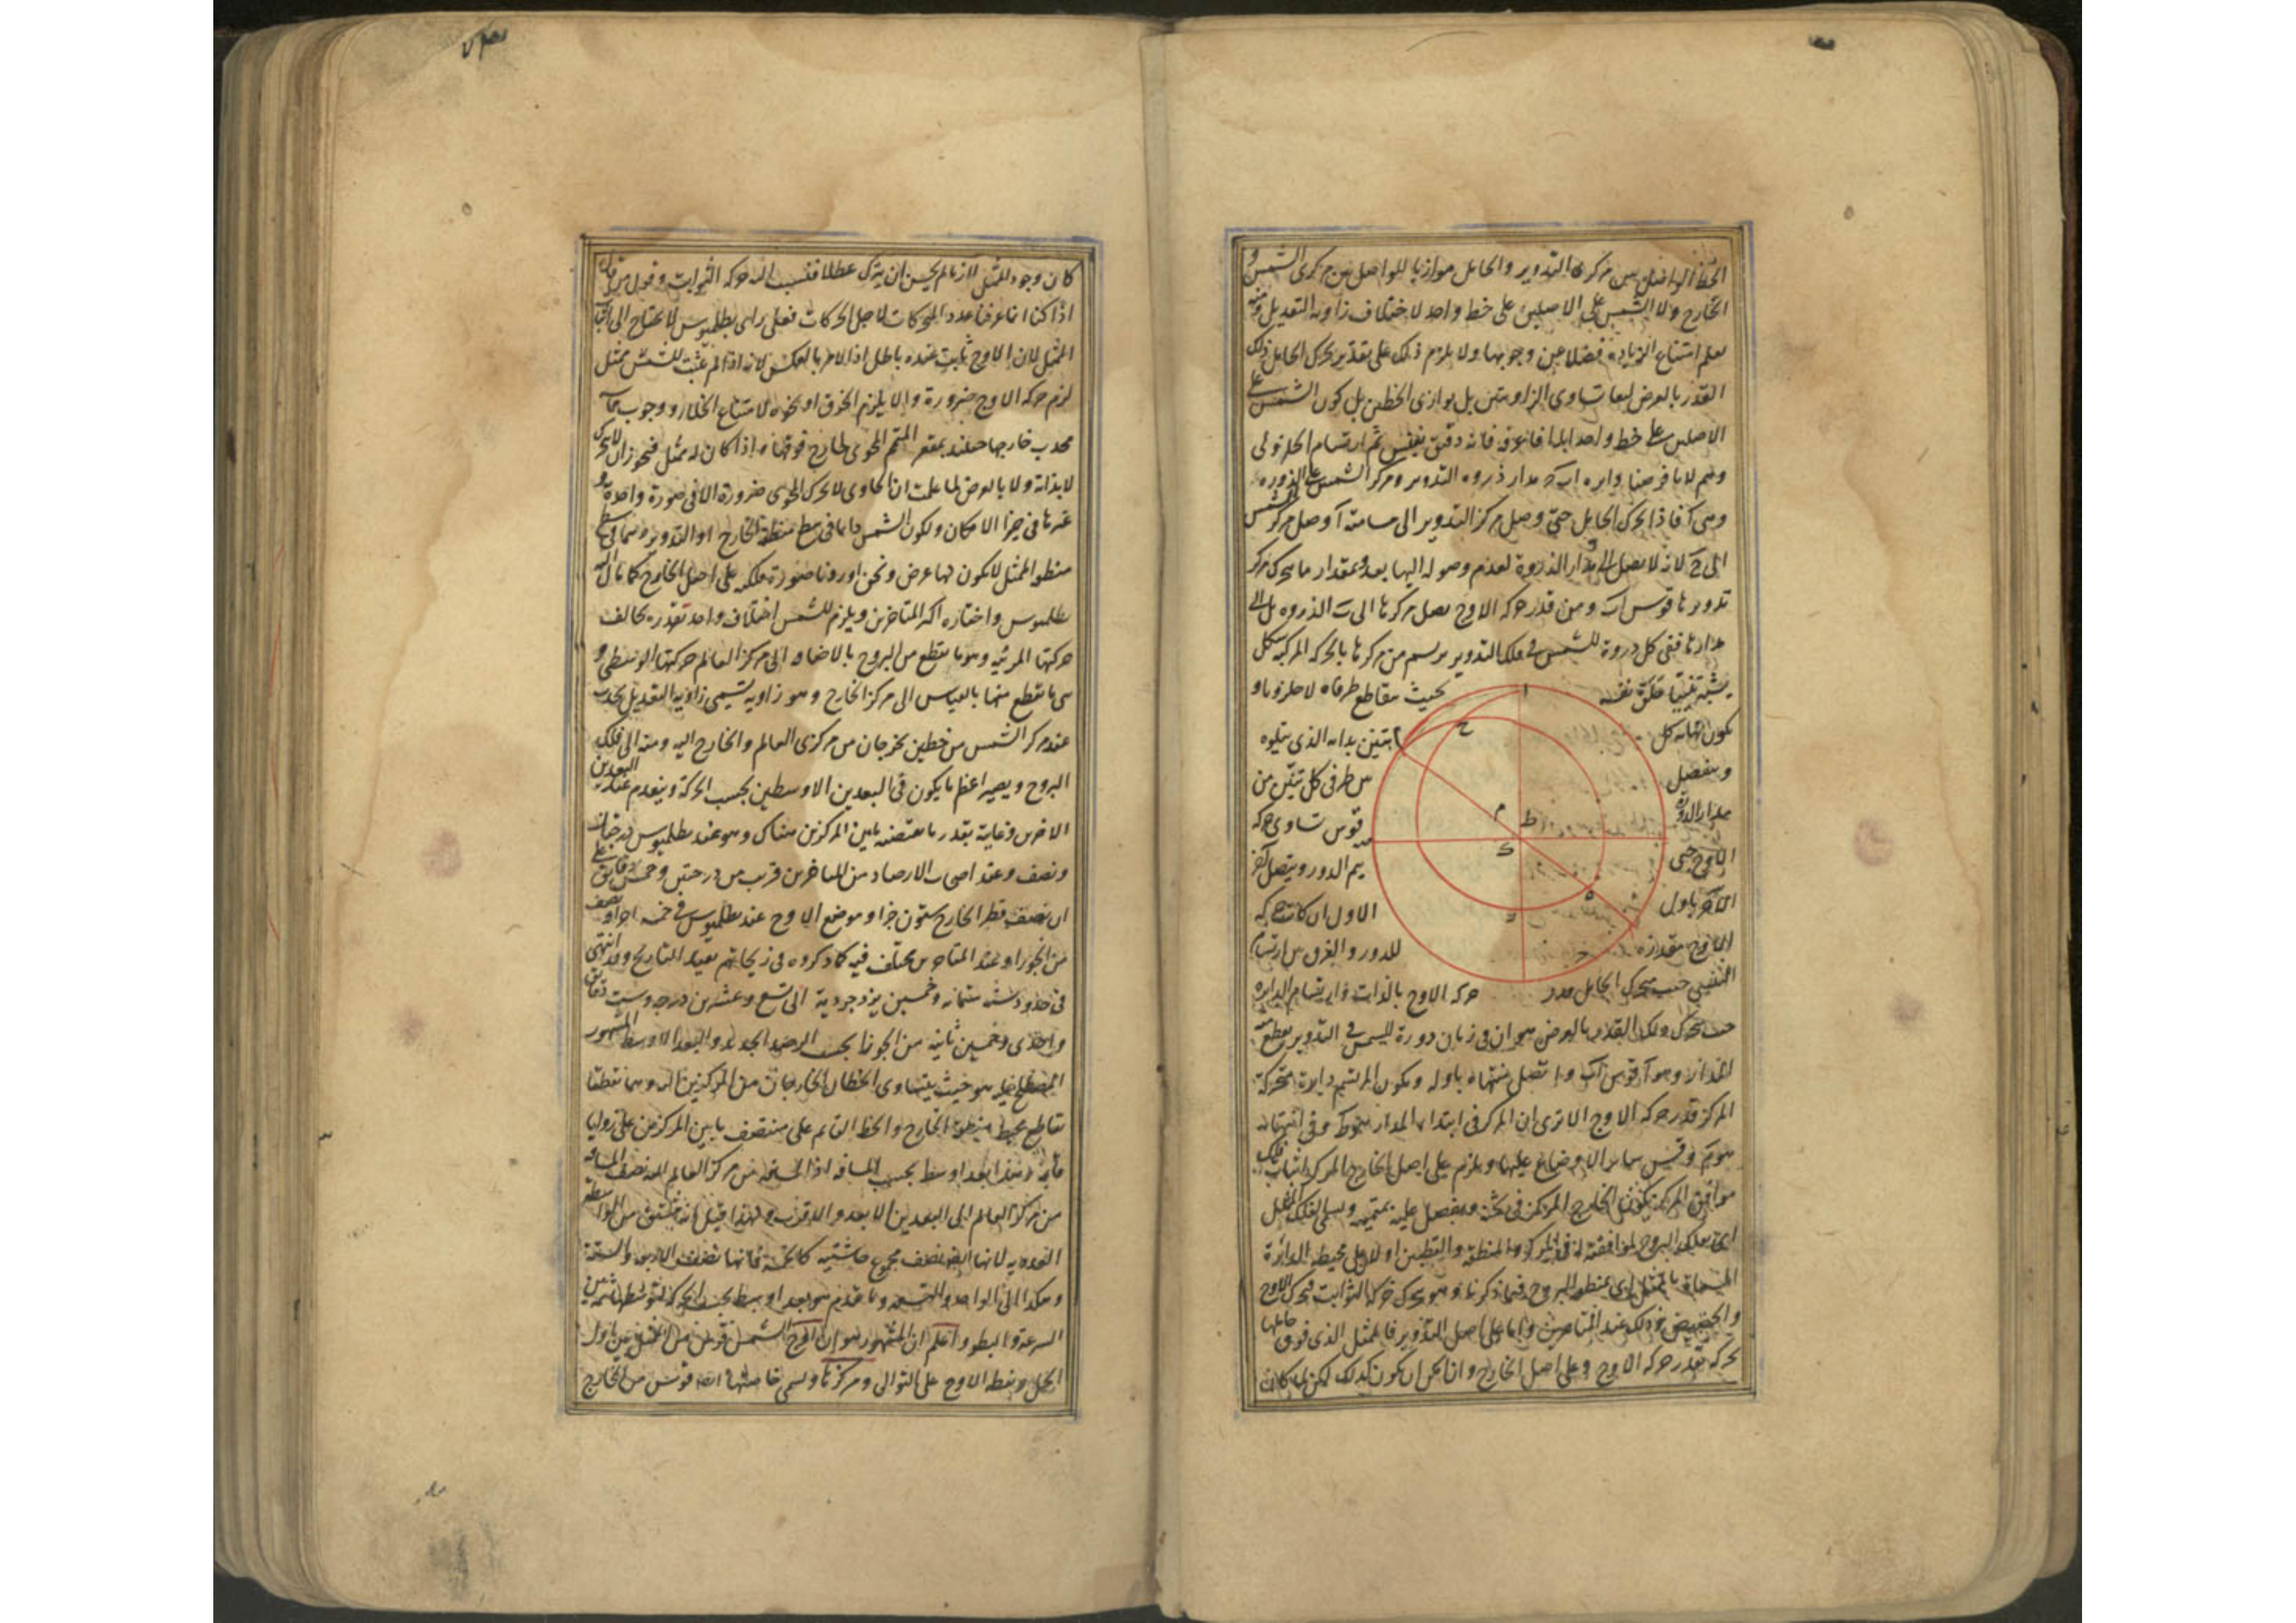 الخط الواصل بين مركزى التدوير والحامل موازيا للواصل بين مركزى الشمس و
الخارج ولا الشمس على الاصلين على خط واحد لاختلاف زاويه التعديل ومنه
يعلم امتناع الزيادة فضلا عن وجوبها ولا يلزم ذلك على تقدير تحرك الحامل ذلك
القدر بالعرض لبقا تساوى الزاويتين بل توازى الخطين بل كون الشمس على
الاصلين على خط واحد ابدا فاعرفه فانه دقيق نفيس ثم ارتسام الحلزونى
وهم لانا فرضنا دايره اب مدار ذروه التدوير ومركز الشمس على الذروه
وهى آ فاذا تحرك الحامل حتى وصل مركز التدوير الى مسامتة آ وصل مركز الشمس
الى ح لانه لا يصل الى مدار الذروة لعدم وصوله اليها بعد بمقدار ما يتحرك مركز
تدويرها قوس اب ومن قدر حركه الاوج يصل مركزها الى ب الذروه بل الى
مدارها ففى كل دروة للشمس فى فلك التدوير يرتسم من مركزها بالحركه المركبه شكل
يشبه تنينا بحيث يتقاطع طرفاه لا حلزونا و
يكون نهايه كل تنين بدايه الذى يتلوه
وينفصل من طرفى كل تنين من
مدار الذروة قوس تساوى حركه
الاوج حتى يتم الدور ويتصل آخر
الآخر باول الاول ان كانت حركه
الاوج مقدرة للدور والفرق بين ارتسام
التنينى حيث يتحرك الحامل بقدر حركه الاوج بالذات وارتسام الدايره
حيث يتحرك ذلك القدر بالعرض هو ان فى زمان دورة للشمس فى التدوير يقطع منه
المدار وهو آ قوس اب واتصل منتهاه باوله ويكون المرتسم دايرة متحركة
المركز قدر حركه الاوج الا ترى ان المركز فى ابتداء المدار هو ك وفى انتهائه
هو م وقس سائر الاوضاع عليها ويلزم على اصل الخارج المركز اثبات فلك
موافق المركز يكون الخارج المركز فى ثخنه وينفصل عليه بمتممه ويسمى الفلك الممثل
اى بفلك البروج لموافقته له فى المركز والمنطقة والقطبين اولا على محيطه الدائرة
المسماة بالممثل اى بمنطقه البروج فيما ذكرنا وهو يتحرك حركه الثوابت فيحرك الاوج
والحضيض بذلك عند المتاخرين واما على اصل التدوير فالممثل الذى فوق حاملها
تحركه بقدر حركه الاوج وعلى اصل الخارج وان امكن ان يكون كذلك لكن لما كان
كان وجود الممثل لازما لم يحسن ان يترك عطلا فنسب اليه حركه الثوابت وقول من قال
اذا كنا انما عرفنا عدد المحركات لاجل الحركات فعلى راى بطلميوس لا يحتاج الى اثبات
الممثل لان الاوج ثابت عنده باطل اذ الامر بالعكس لانه اذا لم يثبت للشمس ممثل
لزم حركه الاوج ضرورة والا يلزم الخرق او نحوه لامتناع الخلا ووجوب مماسة
محدب خارجها حينئذ بمقعر المتمم المحوى لخارج فوقها واذا كان له ممثل فيجوز ان لا يتحرك
لا بذاته ولا بالعرض لما علمت ان الحاوى لا يحرك المحوى ضرورة الا فى صورة واحدة و
غيرها فى حيز الامكان ولكون الشمس دايما فى سطح منطقه الخارج او التدوير وهما فى سطح
منطقه الممثل لا يكون لها عرض ونحن اوردنا صورة فلكه على اصل الخارج كما مال اليه
بطلميوس واختاره اكثر المتاخرين ويلزم للشمس اختلاف واحد بقدره يخالف
حركتها المرئيه وهو ما يقطع من البروج بالاضافه الى مركز العالم حركتها الوسطى و
هى ما يقطع منها بالقياس الى مركز الخارج وهو زاويه تسمى زاويه التعديل تحدث
عند مركز الشمس من خطين يخرجان من مركزى العالم والخارج اليه ومنه الى فلك
البروج ويصير اعظم ما يكون فى البعدين الاوسطين بحسب الحركة وينعدم عند البعدين
الاخرين وغايته بقدر ما يقتضيه ما بين المركزين هناك وهو عند بطلميوس درجتان
ونصف وعند اصحاب الارصاد من المتاخرين قريب من درجتين وخمس دقايق على
ان نصف قطر الخارج ستون جزا وموضع الاوج عند بطلميوس فى خمسه اجزاو نصف
من الجوزا وعند المتاخرين مختلف فيه كما ذكروه فى زيجاتهم بقيد التاريخ وقد انتهى
فى حدود سنه ستمائه وخمسين يزدجردية الى تسع وعشرين درجه وست دقائق
واحدى وخمسين ثانيه من الجوزا بحسب الرصد الجديد والبعد الاوسط المشهور
المصطلح عليه هو حيث يتساوى الخطان الخارجان من المركزين اليه وهما نقطتا
تقاطع محيط منطقه الخارج والخط القايم على منتصف ما بين المركزين على زوايا
قايمه وهذا بعد اوسط بحسب المسافه اذ المسافه من مركز العالم اليه نصف المسافه
من مركز العالم الى البعدين الابعد والاقرب ولهذا قيل انه مشتق من الواسطه
العدديه لانها ايضا نصف مجموع حاشيتيه كالخمسه فانها نصف الاربعه والسته
وهكذا الى الواحد والتسعه وما تقدم هو بعد اوسط بحسب الحركه لتوسطها ثمه بين
السرعه والبطو واعلم ان المشهور هو ان اوج الشمس قوس من الممثل بين اول
الحمل ونقطه الاوج على التوالى ومركزها ويسمى خاصتها ايضا قوس من الخارج